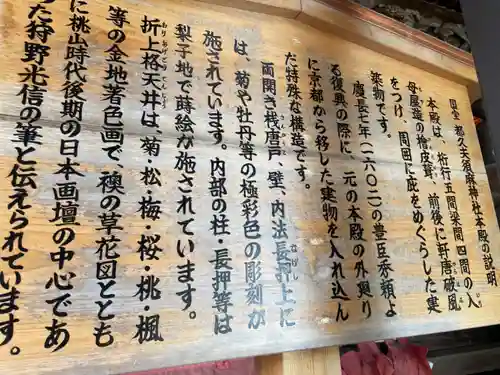 国宝 都久夫須麻神社本殿の説明
本殿は、桁行五間梁間四間の入
母屋造の檜皮葺、前後に軒唐破風
をつけ、周囲に庇をめぐらした実
築物です。
慶長七年(一六〇二)の豊臣秀頼よ
る復興の際に、元の本殿の外廻り
に京都から移した実物を入れ込ん
だ特殊な構造です。
両開き桟唐戸、壁、内法長押上に
は、菊や牡丹等の極彩色の彫刻が
施されています。内部の柱・長押等は
梨子地で蒔絵が施されています。
折上格天井は、菊・松・梅・桜・桃・楓
等の金地著色画で、襖の草花図とも
に桃山時代後期の日本画壇の中心であ
った狩野光信の筆と伝えられています。